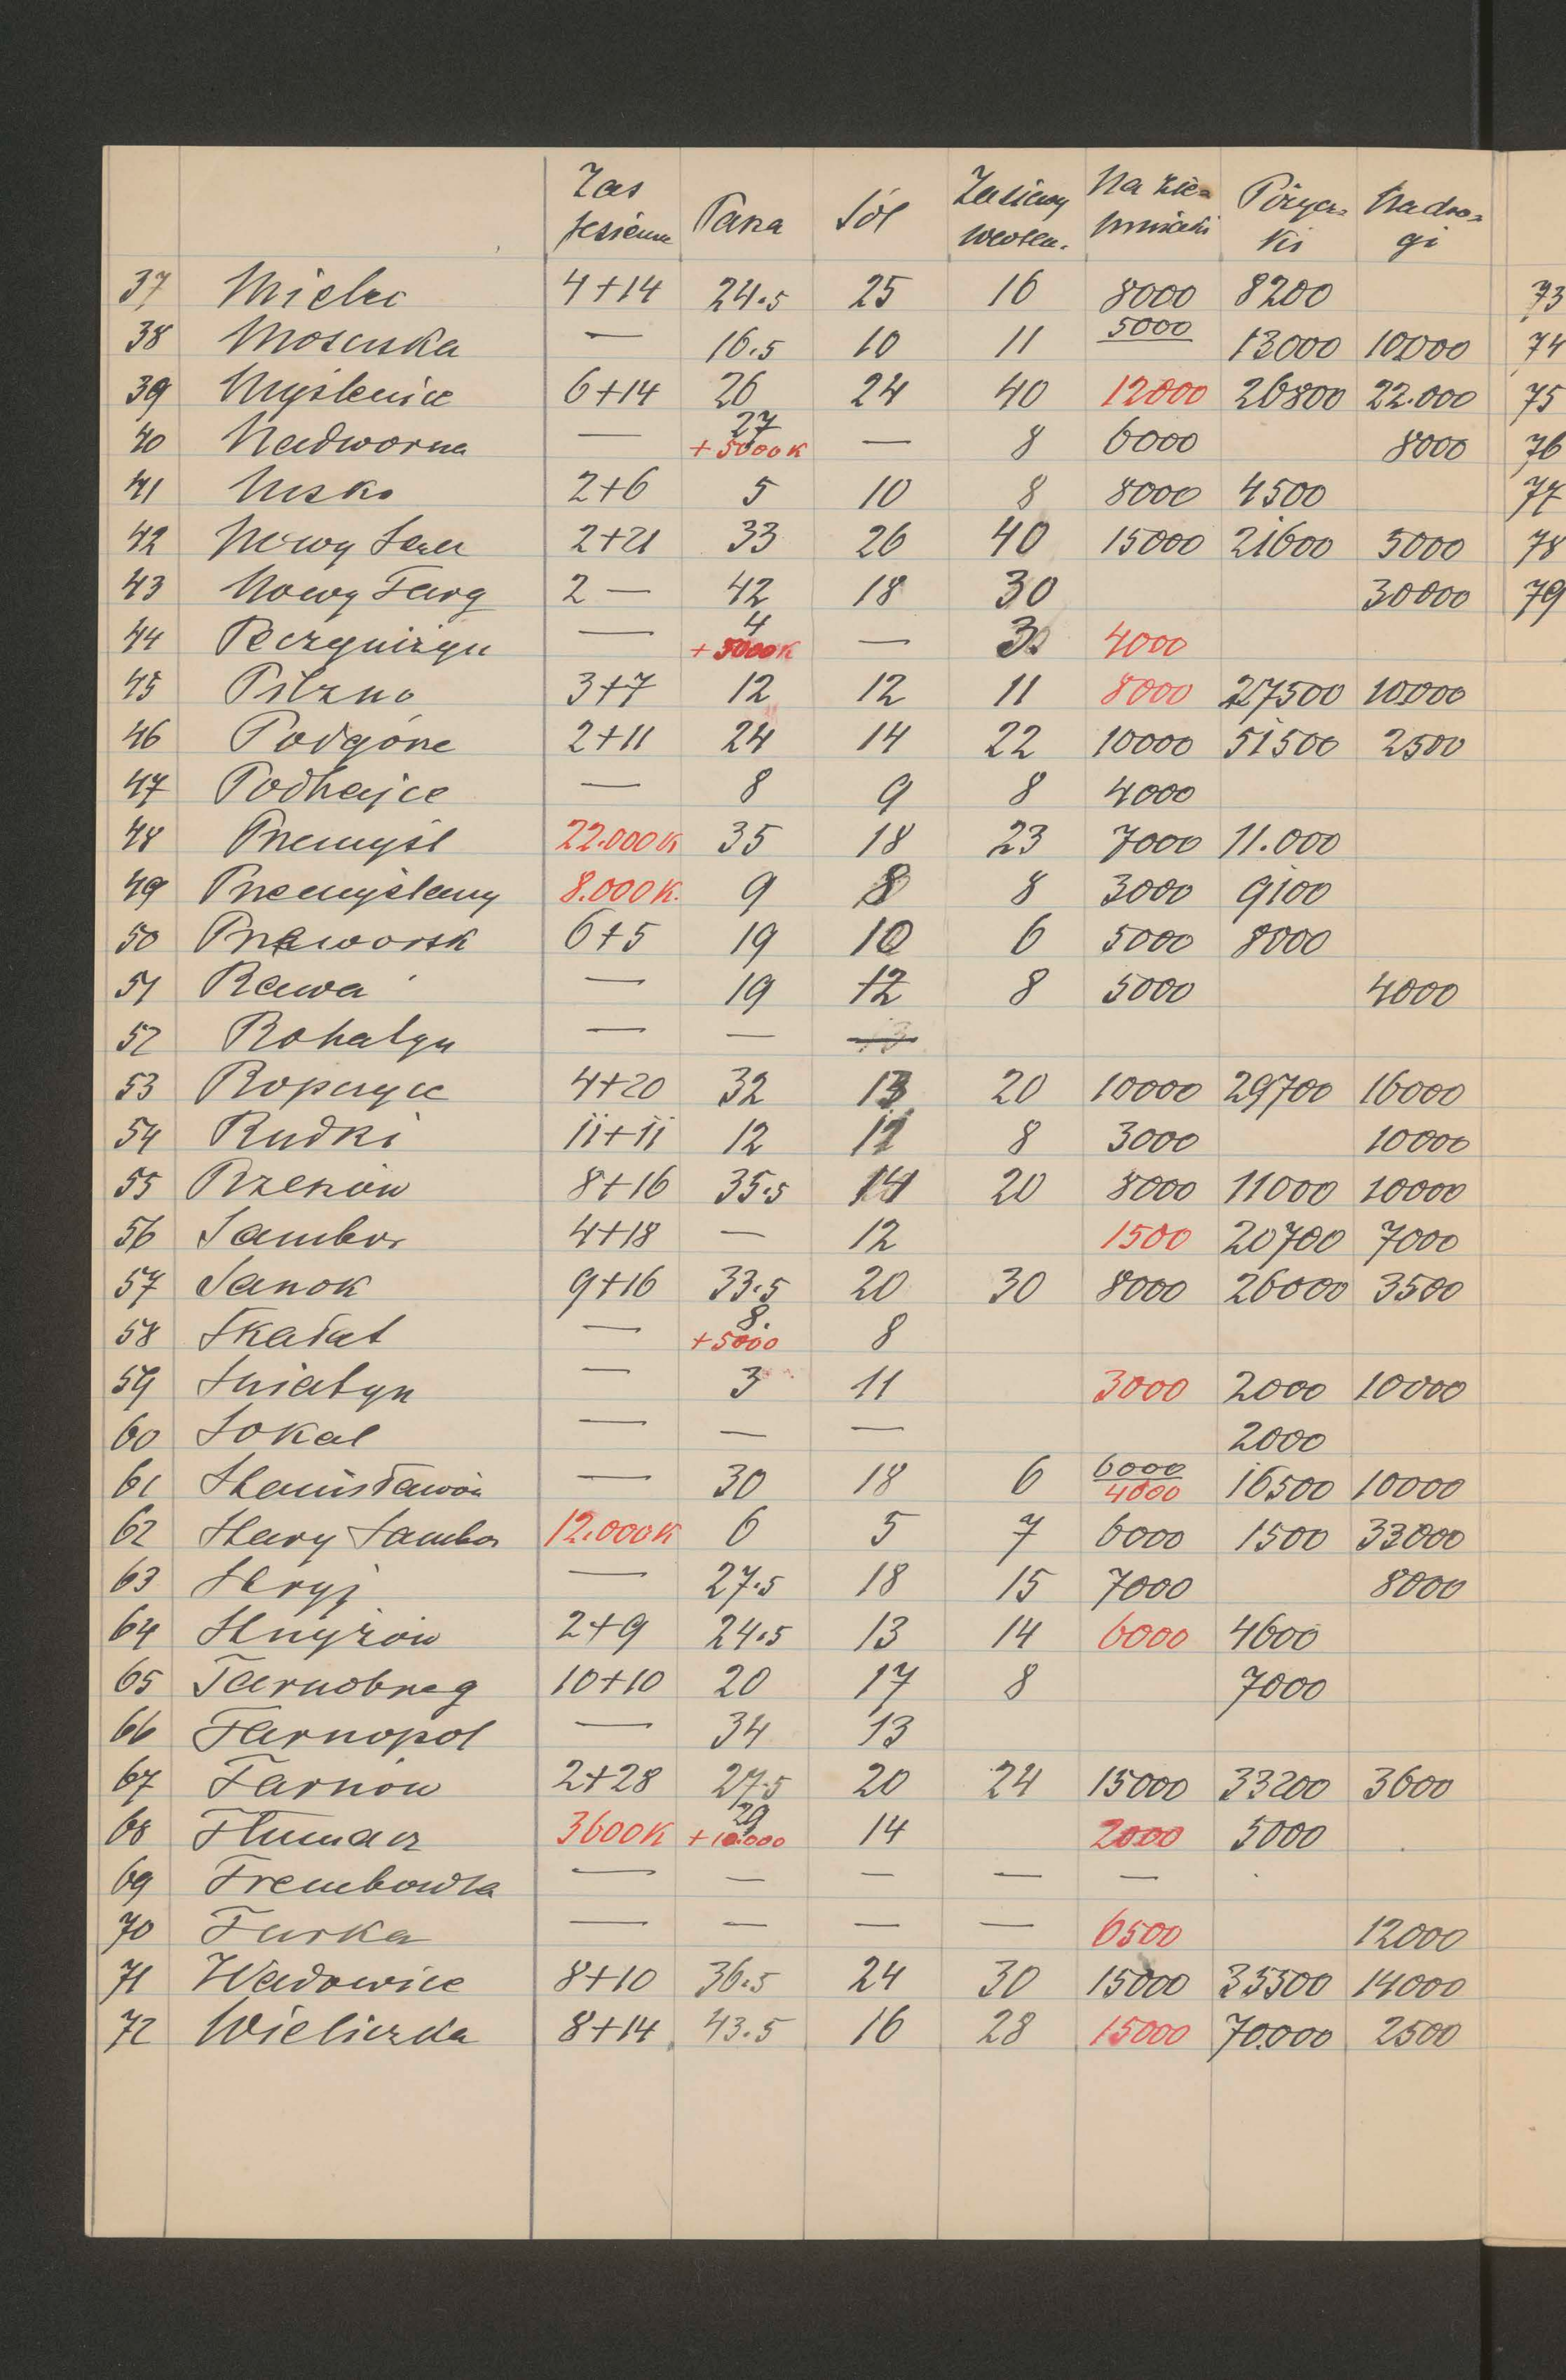 Zas jesienne Pasza Sól Zasiewy wiosen. Na zie= mniaki Pożycz= ki Na dro= gi
37 Mielec 4+14 24.5 25 16 8000 8200 73
38 Mosciska — 16.5 10 11 5000 13000 10000 74
39 Myślenice 6+14 26 24 40 12000 26800 22.000 75
40 Nadworna — 27 +5000K — 8 6000 8000 76
41 Nisko 2+6 5 10 8 8000 4500 77
42 Nowy Sącz 2+21 33 26 40 15000 21600 5000 78
43 Nowy Targ 2 — 42 18 30 30000 79
44 Peczyniżyn — 4 +5000K — 4000
45 Pilzno 3+7 12 12 11 8000 27500 10000
46 Podgórze 2+11 24 14 22 10000 51500 2500
47 Podhajce — 8 9 8 4000
48 Przemyśl 22.000K 35 18 23 7000 11.000
49 Przemyślany 8.000K. 9 8 8 3000 9100
50 Przeworsk 6+5 19 10 6 5000 8000
51 Rawa — 19 12 8 5000 4000
52 Rohatyn — —
53 Ropczyce 4+20 32 13 20 10000 29700 16000
54 Rudki 11+11 12 12 8 3000 10000
55 Rzeszów 8+16 35.5 14 20 8000 11000 10000
56 Sambor 4+18 — 12 1500 20700 7000
57 Sanok 9+16 33.5 20 30 8000 26000 3500
58 Skałat — 8. +5000 8
59 Śniatyn — 3 11 3000 2000 10000
60 Sokal — — — 2000
61 Stanisławów — 30 18 6 6000 4000 16500 10000
62 Stary Sambor 12.000K 6 5 7 6000 1500 33000
63 Stryj — 27.5 18 15 7000 8000
64 Strzyżów 2+9 24.5 13 14 6000 4600
65 Tarnobrzeg 10+10 20 17 8 7000
66 Tarnopol — 34 13
67 Tarnów 2+28 27.5 20 24 15000 33200 3600
68 Tłumacz 3600K 29 +10.000 14 2000 5000
69 Trembowla — — — — —
70 Turka — — — — 6500 12000
71 Wadowice 8+10 36.5 24 30 15000 35500 14000
72 Wieliczka 8+14 43.5 16 28 15000 70.000 2500